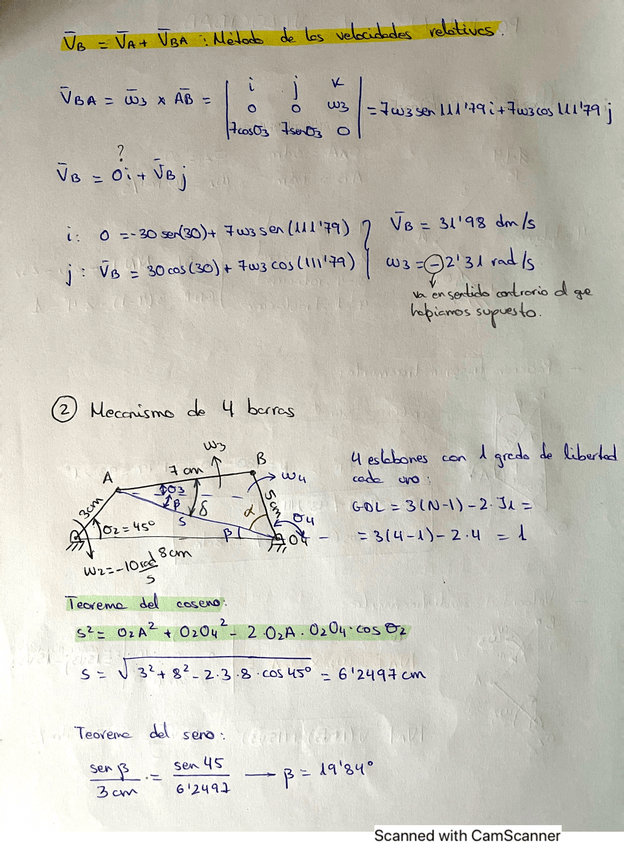 V̄B = V̄A + V̄BA : Método de las velocidades relativas.
V̄BA = ω̄3 × AB̄ = | i j k | = 7ω3 sen 111'79 i + 7ω3 cos 111'79 j
0 0 ω3
7cosθ3 7senθ3 0
?
V̄B = 0i + V̄B j
i: 0 = -30 sen(30) + 7ω3 sen(111'79)
j: V̄B = 30 cos(30) + 7ω3 cos(111'79)
V̄B = 31'98 dm/s
ω3 = -2'31 rad/s
va en sentido contrario al que
habíamos supuesto.
② Mecanismo de 4 barras
ω3
A 7 cm B
ω4
3cm θ3 β δ 5cm
θ2=45º S α θ4
β O4
ω2=-10 rad/s 8cm
4 eslabones con 1 grado de libertad
cada uno:
GDL = 3(N-1) - 2·J1 =
= 3(4-1) - 2·4 = 1
Teorema del coseno:
s² = O2A² + O2O4² - 2·O2A·O2O4·cos θ2
s = √3² + 8² - 2·3·8·cos 45º = 6'2497 cm
Teorema del seno:
sen β / 3 cm = sen 45 / 6'2497 → β = 19'84º
Scanned with CamScanner